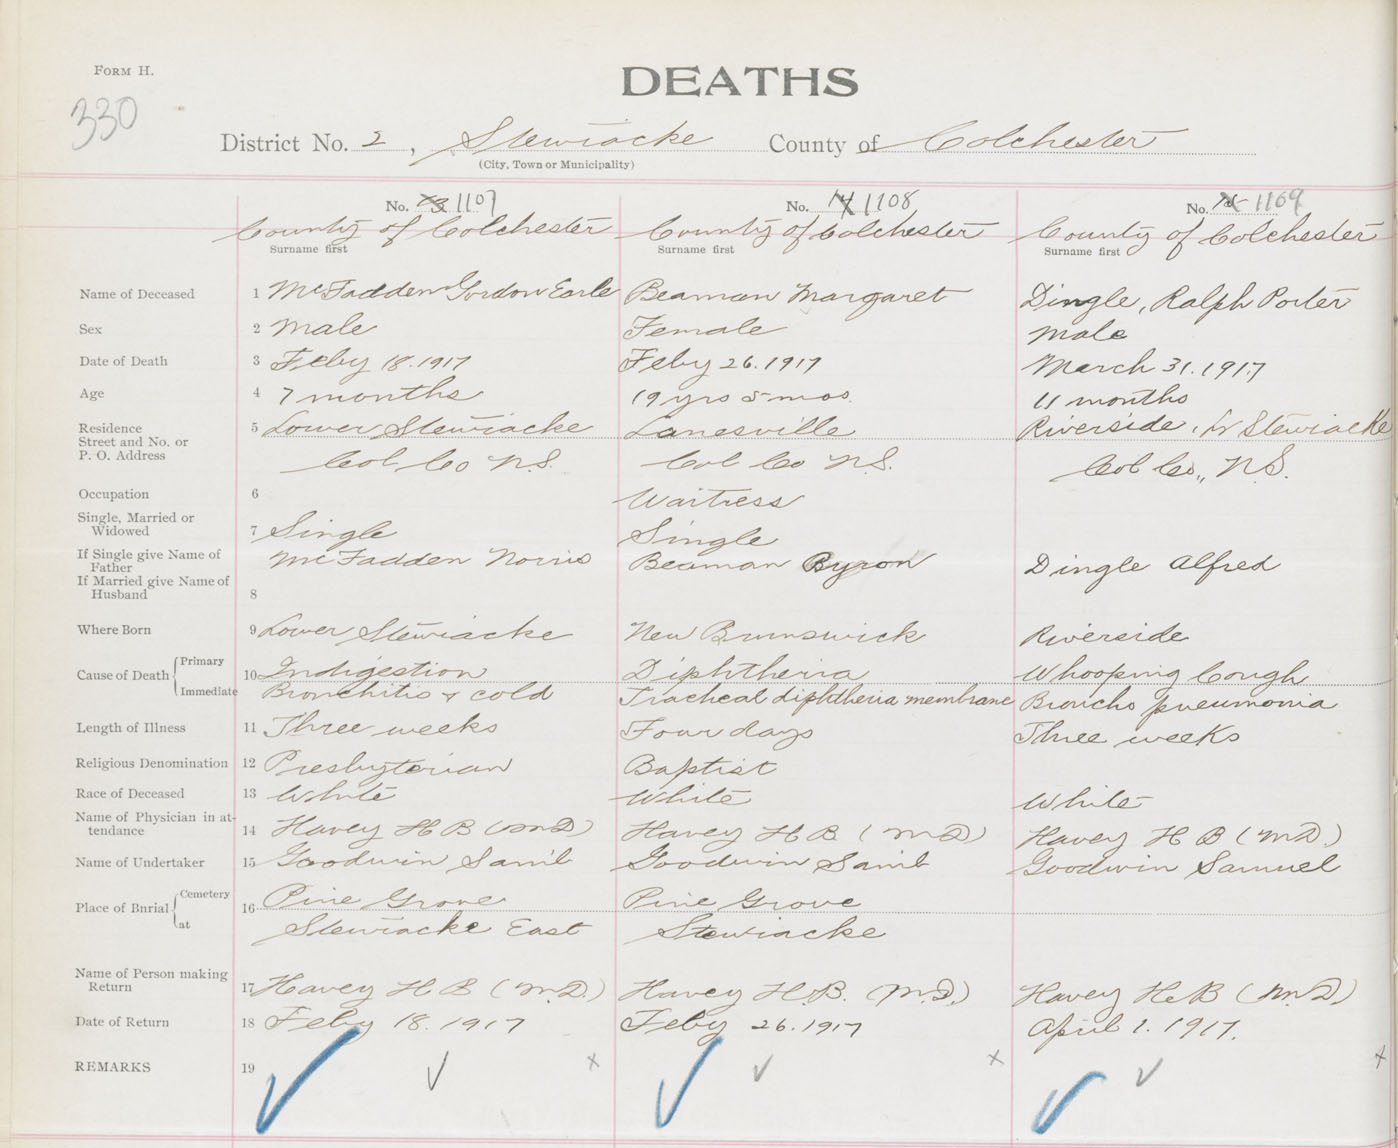 FORM H.
DEATHS
330
District No. 2, Stewiacke County of Colchester
(City, Town or Municipality)
No. 1107 No. 14 1108 No. 15 1109
County of Colchester County of Colchester County of Colchester
Surname first Surname first Surname first
Name of Deceased 1 McFadden Gordon Earle Beaman Margaret Dingle, Ralph Porter
Sex 2 Male Female Male
Date of Death 3 Feby 18. 1917 Feby 26. 1917 March 31. 1917
Age 4 7 months 19 yrs 5 mos. 11 months
Residence 5 Lower Stewiacke Lanesville Riverside, Lr Stewiacke
Street and No. or
P. O. Address Col. Co N.S. Col Co N.S. Col Co., N.S.
Occupation 6 Waitress
Single, Married or
Widowed 7 Single Single
If Single give Name of
Father McFadden Norris Beaman Byron Dingle Alfred
If Married give Name of
Husband 8
Where Born 9 Lower Stewiacke New Brunswick Riverside
Cause of Death Primary 10 Indigestion Diphtheria Whooping Cough
Immediate Bronchitis & cold Tracheal diphtheria membrane Broncho pneumonia
Length of Illness 11 Three weeks Four days Three weeks
Religious Denomination 12 Presbyterian Baptist
Race of Deceased 13 White White White
Name of Physician in at-
tendance 14 Havey H B (M.D) Havey H B. (M.D) Havey H B (M.D.)
Name of Undertaker 15 Goodwin Saml Goodwin Saml Goodwin Samuel
Place of Burial Cemetery 16 Pine Grove Pine Grove
at Stewiacke East Stewiacke
Name of Person making
Return 17 Havey H B (M.D.) Havey H.B. (M.D.) Havey H.B (M.D.)
Date of Return 18 Feby 18. 1917 Feby 26. 1917 April 1. 1917.
REMARKS 19